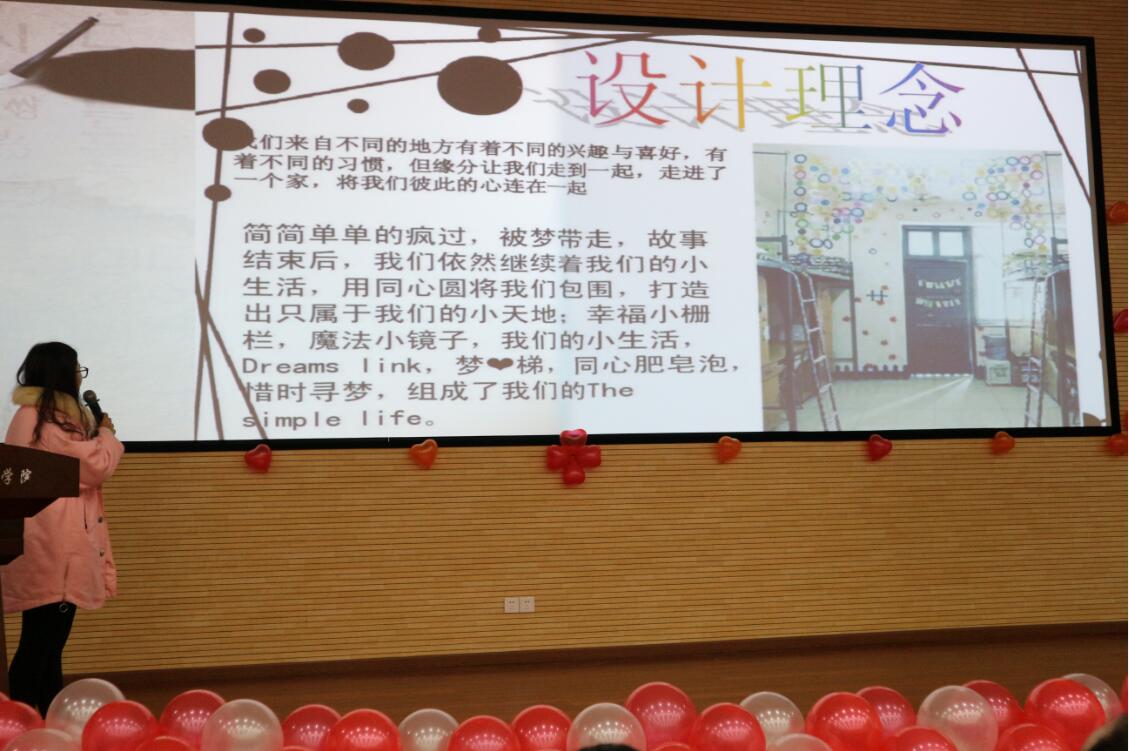 设计理念
我们来自不同的地方有着不同的兴趣与喜好，有
着不同的习惯，但缘分让我们走到一起，走进了
一个家，将我们彼此的心连在一起
简简单单的疯过，被梦带走，故事
结束后，我们依然继续着我们的小
生活，用同心圆将我们包围，打造
出只属于我们的小天地；幸福小栅
栏，魔法小镜子，我们的小生活，
Dreams link，梦❤梯，同心肥皂泡，
惜时寻梦，组成了我们的The
simple life。
学院